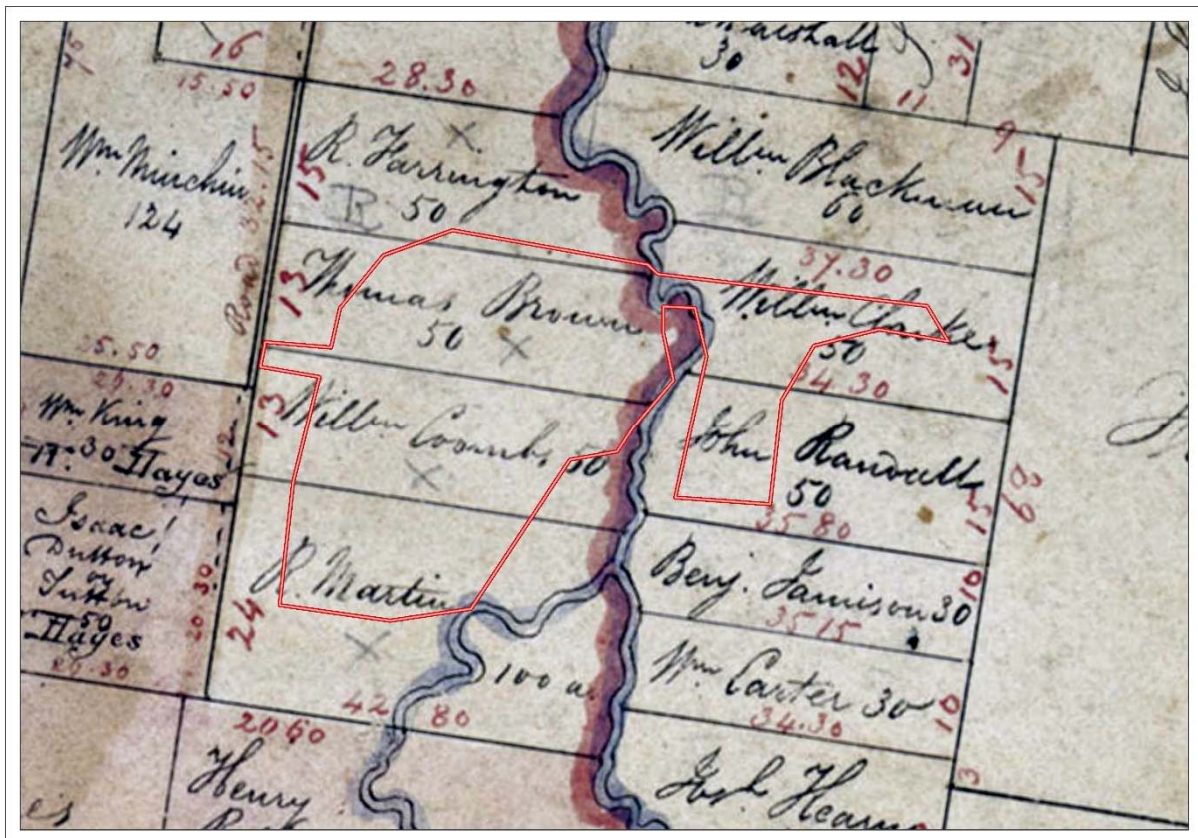 16
15.50
28.30
30
12
11
31
9
Wm Minchin
124
Road 32.15
15
R. Farrington
50
Willm Blackman
60
15
37.30
13
Thomas Brown
50
Willm Clarke
50
34.30
15
25.50
29.30
Wm King
30 Hayes
12
13
Willm Coombs 50
John Randall
50
35 80
15
69
Isaac
Dutton
or
Sutton
50
Hayes
29.30
20 30
24
R. Martin
100 a.
Benj. Jamison 30
35 15
10
Wm Carter 30
34.30
10
42 80
20 60
Henry
Josh Hearn
3